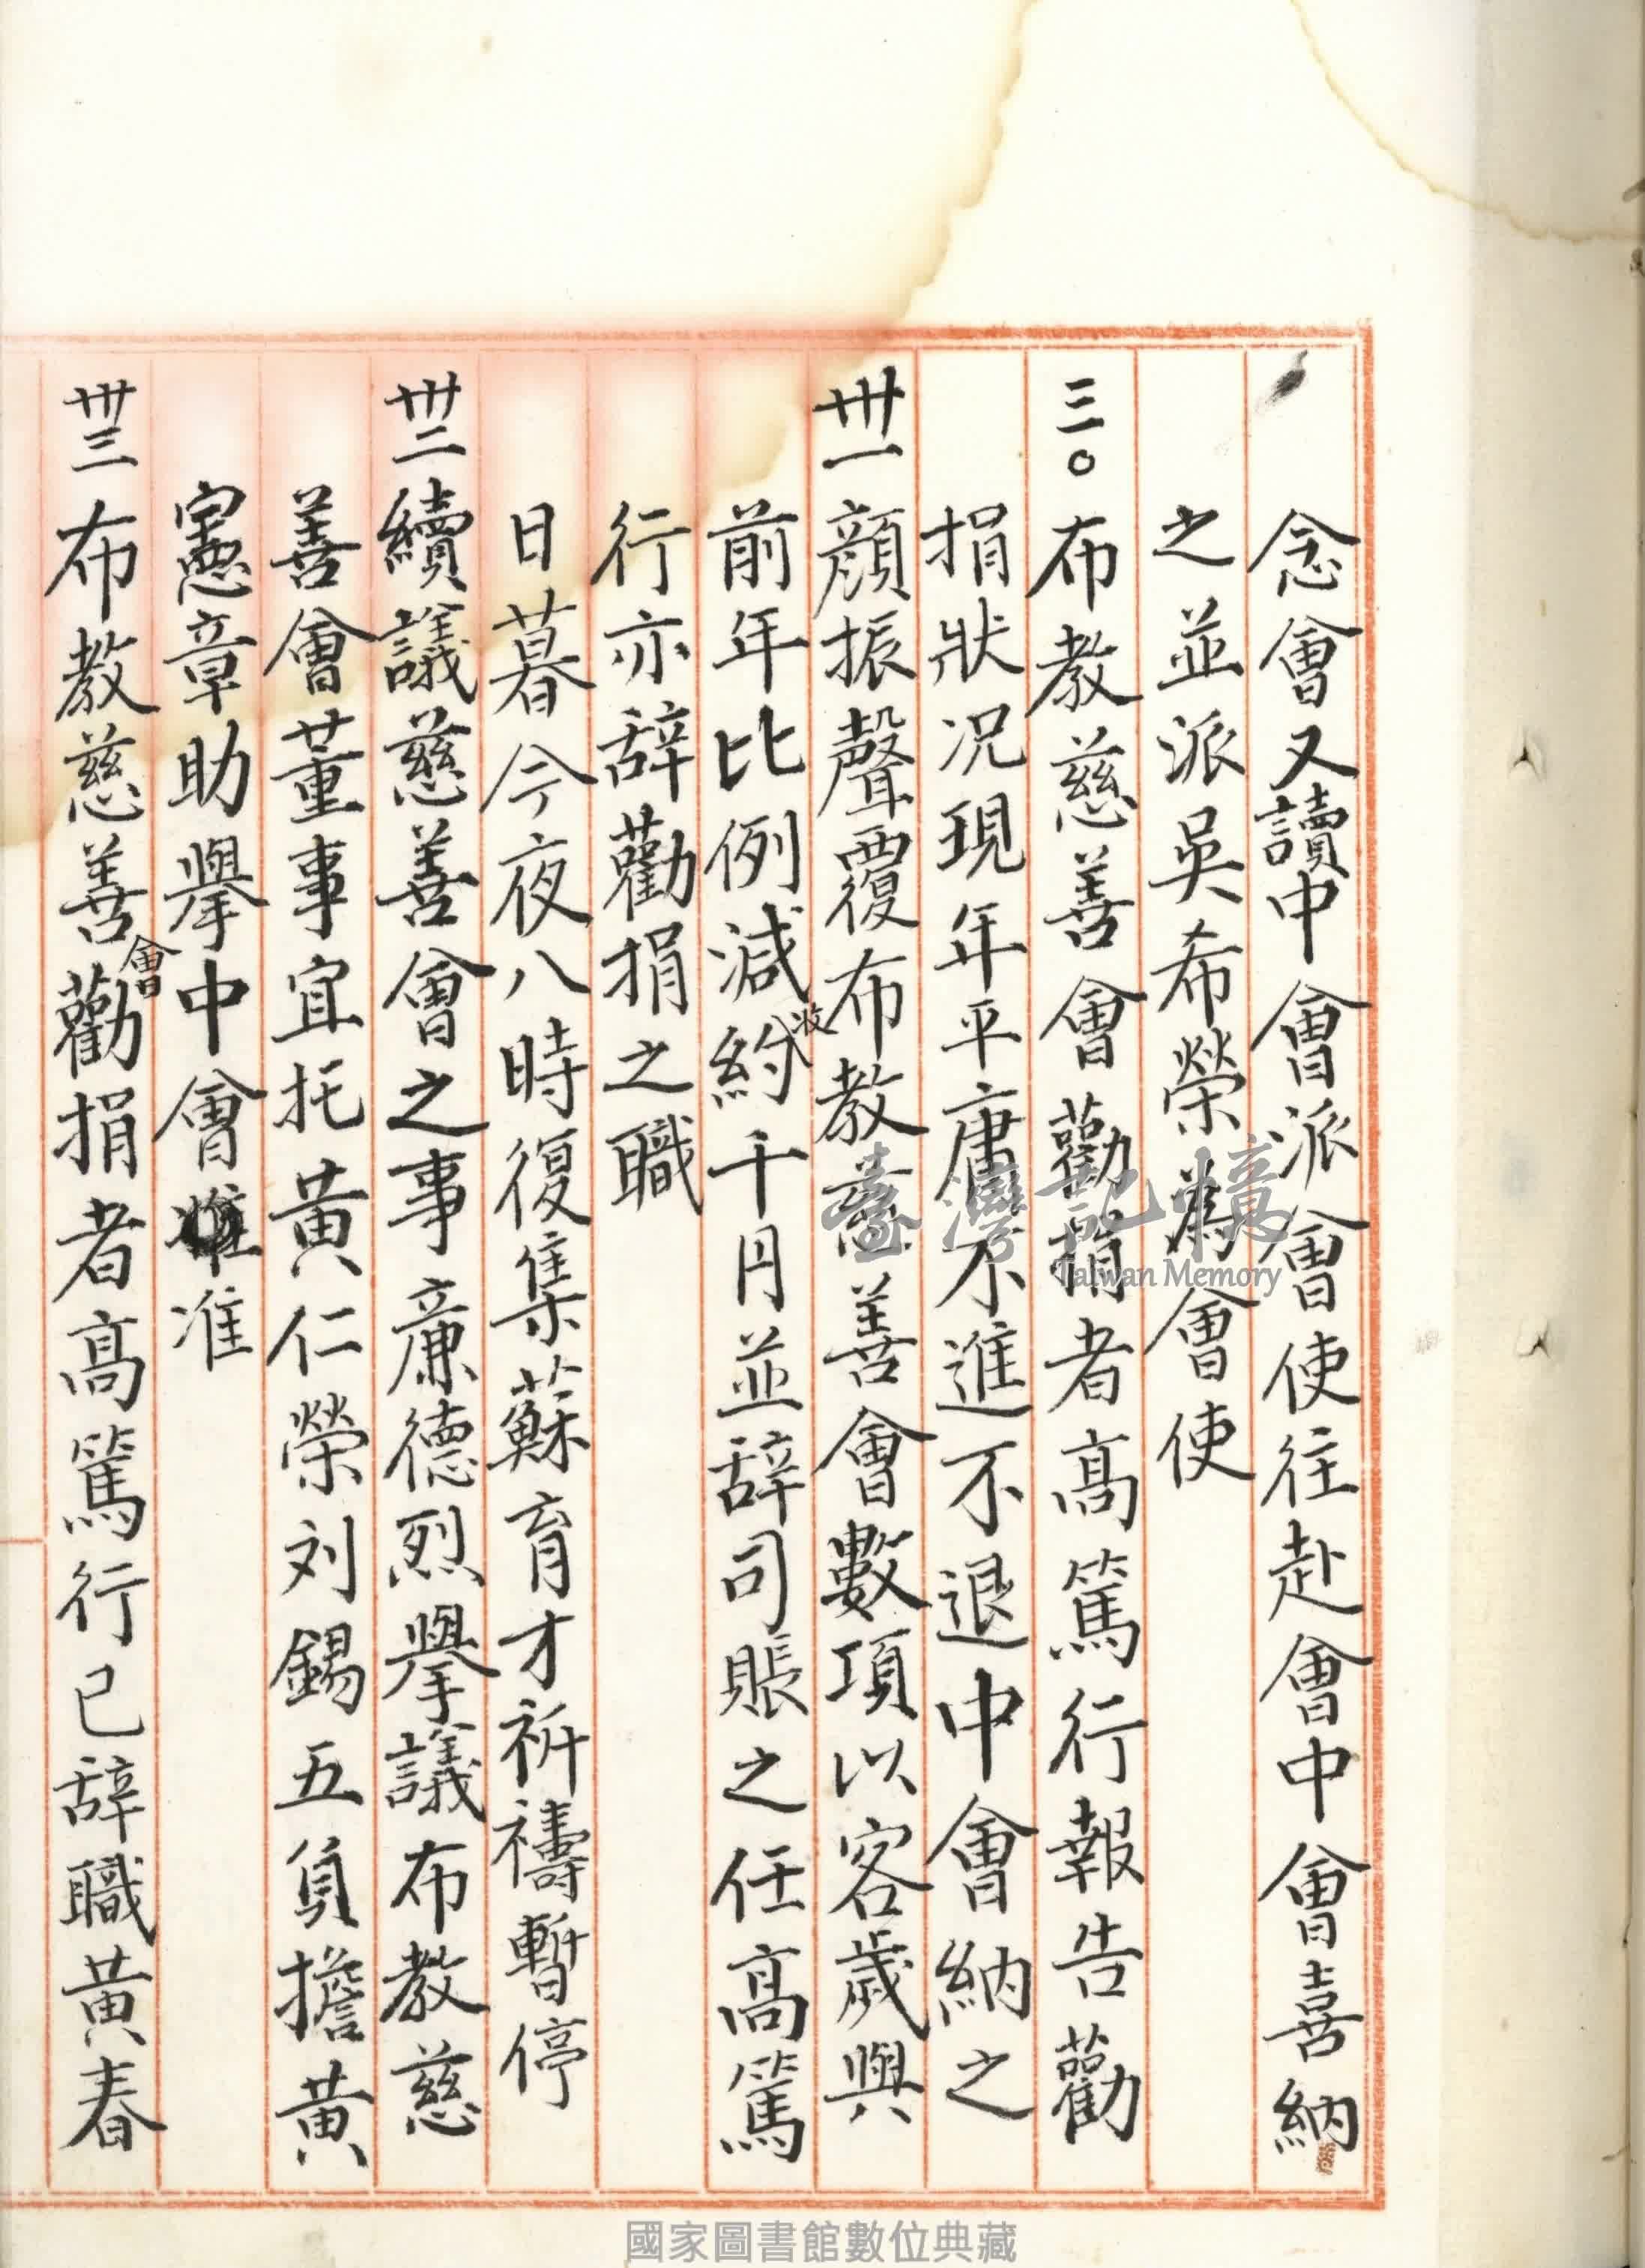 念會又讀中會派會使往赴會中會喜納
之並派吳希榮為會使
三〇布教慈善會勸捐者高篤行報告勸
捐狀況現年平庸不進不退中會納之
卅一顏振聲覆布教慈善會數項以客歲與
前年比例減收約千円並辞司賬之任高篤
行亦辞勸捐之職
日暮今夜八時復集蘇育才祈禱暫停
卅二續議慈善會之事廉德烈擧議布教慈
善會董事宜托黃仁榮刘錫五負擔黃
憲章助擧中會准
卅三布教慈善會勸捐者高篤行已辞職黃春
臺灣記憶
Taiwan Memory
國家圖書館數位典藏